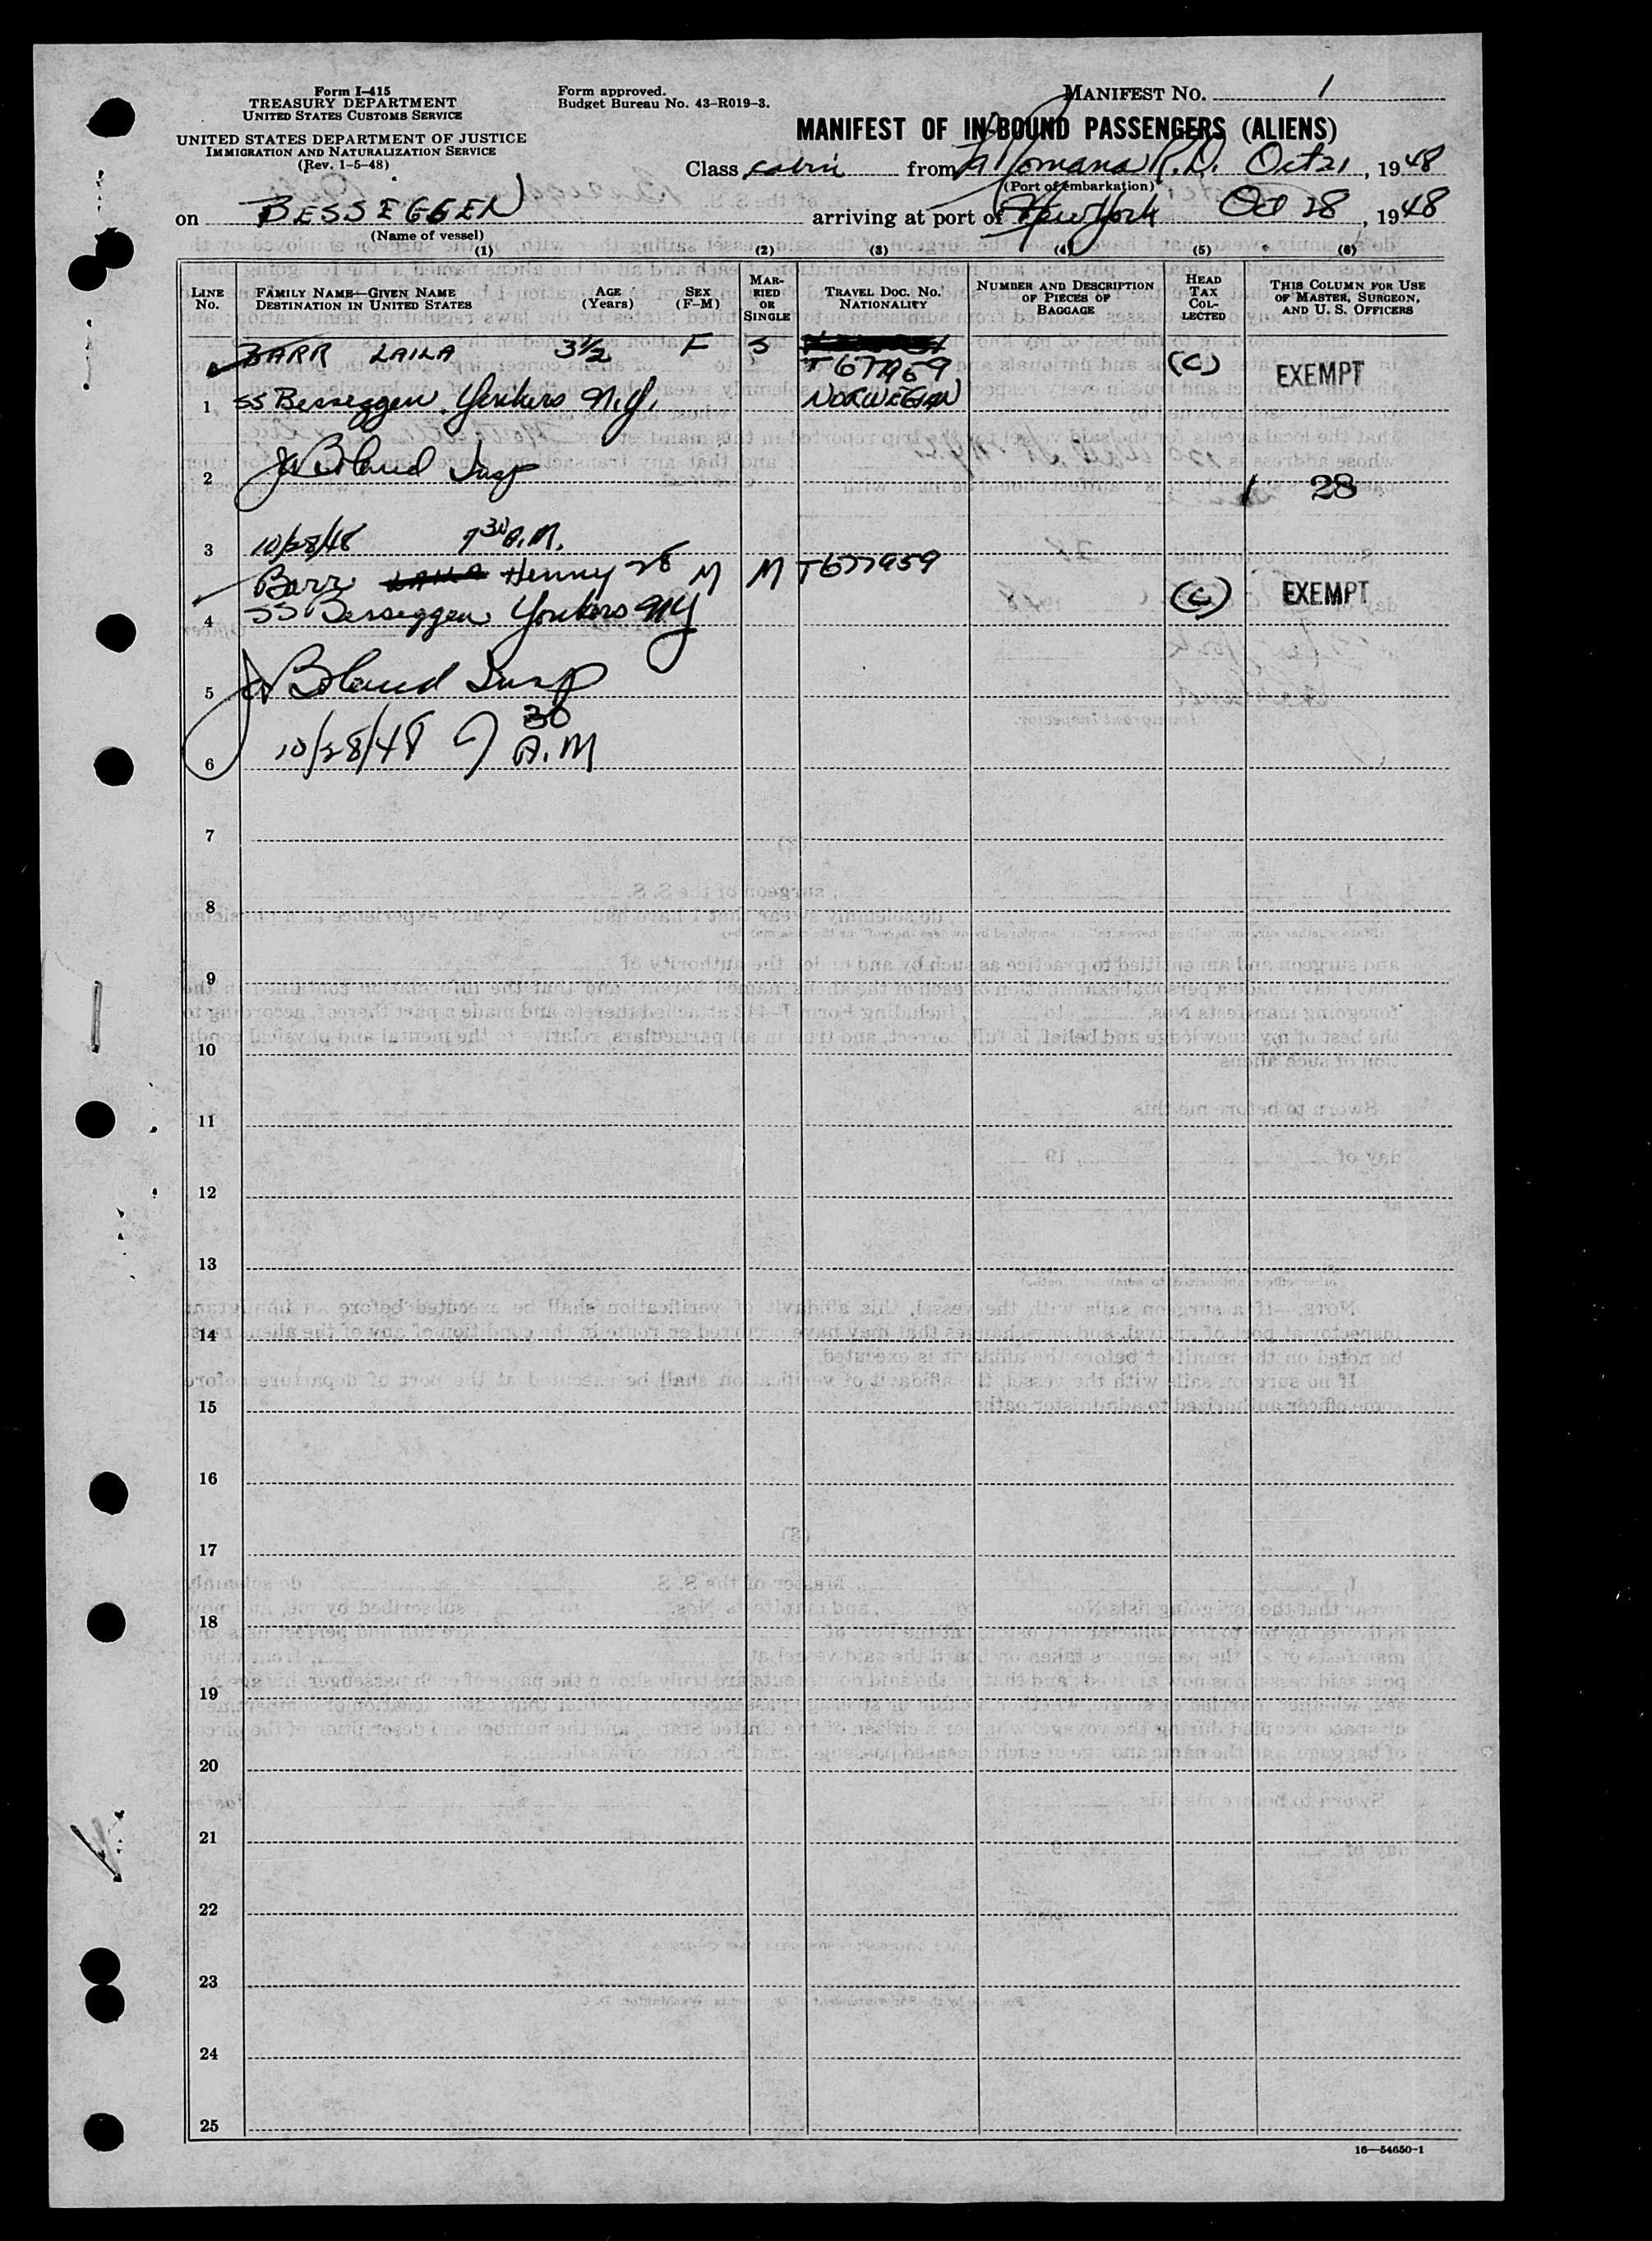 Form I-415
TREASURY DEPARTMENT
UNITED STATES CUSTOMS SERVICE
UNITED STATES DEPARTMENT OF JUSTICE
IMMIGRATION AND NATURALIZATION SERVICE
(Rev. 1-5-48)
Form approved.
Budget Bureau No. 43-R019-3.
MANIFEST NO. 1
MANIFEST OF IN-BOUND PASSENGERS (ALIENS)
Class cabin from La Romana R.D. Oct 21, 1948
(Port of embarkation)
on BESSEGGEN arriving at port of New York Oct 28, 1948
(Name of vessel)
(1) (2) (3) (4) (5) (6)
LINE NO.
FAMILY NAME—GIVEN NAME
DESTINATION IN UNITED STATES
AGE
(Years)
SEX
(F-M)
MAR-
RIED
OR
SINGLE
TRAVEL DOC. NO.
NATIONALITY
NUMBER AND DESCRIPTION
OF PIECES OF
BAGGAGE
HEAD
TAX
COL-
LECTED
THIS COLUMN FOR USE
OF MASTER, SURGEON,
AND U. S. OFFICERS
BARR LAILA 3½ F S
T677959 (C) EXEMPT
1 SS Besseggen Yonkers N.Y. NORWEGIAN
2 J Boland Insp 28
3 10/28/48 7 30 A.M.
Barr Henny 28 M M T677959
4 SS Besseggen Yonkers NY (C) EXEMPT
5 J Boland Insp
6 10/28/48 7 30 A.M
7
8
9
10
11
12
13
14
15
16
17
18
19
20
21
22
23
24
25
16—54650-1